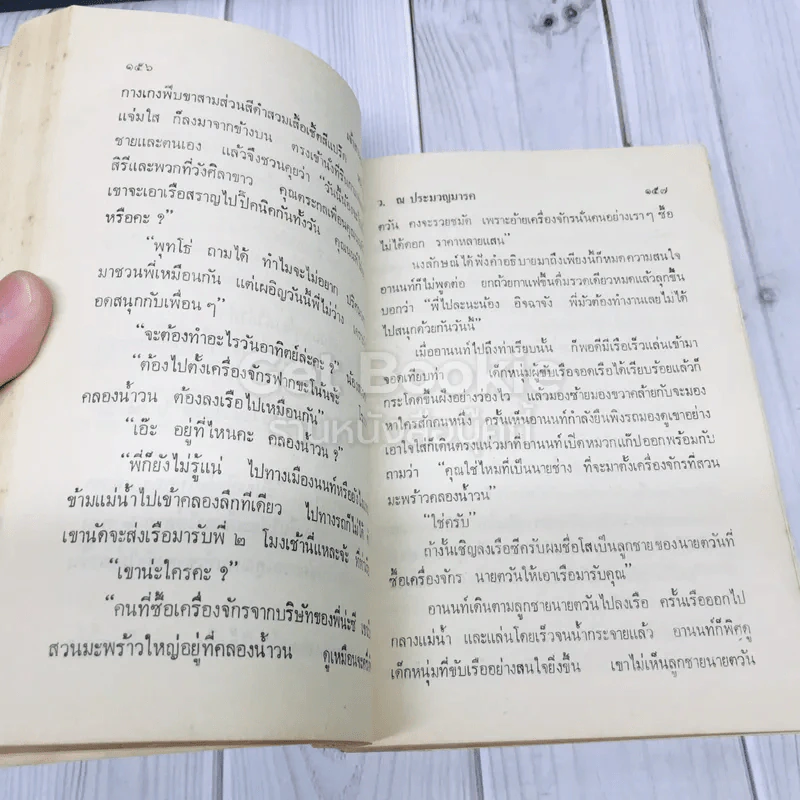 ๑๕๖
กางเกงพับขาสามส่วนสีดำสวมเสื้อเชิ้ตสีแปร๊ด
แจ่มใส ก็ลงมาจากข้างบน ตรงเข้านั่งที่ริม
ชายและตนเอง แล้วจึงชวนคุยว่า "วันนี้น้อง
สิรีและพวกที่วังศิลาขาว คุณตระกลเพื่อนคุณ
เขาจะเอาเรือสราญไปปิ๊คนิคกันทั้งวัน
หรือคะ ?"
"พุทโธ่ ถามได้ ทำไมจะไม่อยาก
มาชวนพี่เหมือนกัน แต่เผอิญวันนี้พี่ไม่ว่าง
อดสนุกกับเพื่อน ๆ"
"จะต้องทำอะไรวันอาทิตย์ล่ะคะ ?"
"ต้องไปตั้งเครื่องจักรฟากขะโน้นจ้ะ
คลองน้ำวน ต้องลงเรือไปเหมือนกัน"
"เอ๊ะ อยู่ที่ไหนคะ คลองน้ำวน ?"
"พี่ก็ยังไม่รู้แน่ ไปทางเมืองนนท์หรือยังไง
ข้ามแม่น้ำไปเข้าคลองลึกทีเดียว ไปทางรถก็ไม่ได้
เขานัดจะส่งเรือมารับพี่ ๒ โมงเช้านี่แหละจ้ะ
"เขาน่ะใครคะ ?"
"คนที่ซื้อเครื่องจักรจากบริษัทของพี่น่ะซี
สวนมะพร้าวใหญ่อยู่ที่คลองน้ำวน ดูเหมือนจะ
ว. ณ ประมวญมารค ๑๕๗
ตวัน คงจะรวยชมัด เพราะอ้ายเครื่องจักรนั่นคนอย่างเรา ๆ ซื้อ
ไม่ได้ดอก ราคาหลายแสน"
นงลักษณ์ได้ฟังคำอธิบายมาถึงเพียงนี้ก็หมดความสนใจ
อานนท์ก็ไม่พูดต่อ ยกถ้วยกาแฟขึ้นดื่มรวดเดียวหมดแล้วลุกขึ้น
บอกว่า "พี่ไปละนะน้อง อิจฉาจัง พี่มัวต้องทำงานเลยไม่ได้
ไปสนุกด้วยกันวันนี้"
เมื่ออานนท์ไปถึงท่าเรียบนั้น ก็พอดีมีเรือเร็วแล่นเข้ามา
จอดเทียบท่า เด็กหนุ่มผู้ขับเรือจอดเรือได้เรียบร้อยแล้วก็
กระโดดขึ้นฝั่งอย่างว่องไว แล้วมองซ้ายมองขวาคล้ายกับจะมอง
หาใครสักคนหนึ่ง ครั้นเห็นอานนท์กำลังยืนพิงรถมองดูเขาอย่าง
เอาใจใส่ก็เดินตรงแน่วมาที่อานนท์เปิดหมวกแก๊ปออกพร้อมกับ
ถามว่า "คุณใช่ไหมที่เป็นนายช่าง ที่จะมาตั้งเครื่องจักรที่สวน
มะพร้าวคลองน้ำวน"
"ใช่ครับ"
ถ้างั้นเชิญลงเรือซีครับผมชื่อโสเป็นลูกชายของนายตวันที่
ซื้อเครื่องจักร นายตวันให้เอาเรือมารับคุณ"
อานนท์เดินตามลูกชายนายตวันไปลงเรือ ครั้นเรือออกไป
กลางแม่น้ำ และแล่นโดยเร็วจนน้ำกระจายแล้ว อานนท์ก็พิศดู
เด็กหนุ่มที่ขับเรืออย่างสนใจยิ่งขึ้น เขาไม่เห็นลูกชายนายตวัน
Get Bookie
ร้านหนังสือเก็ท